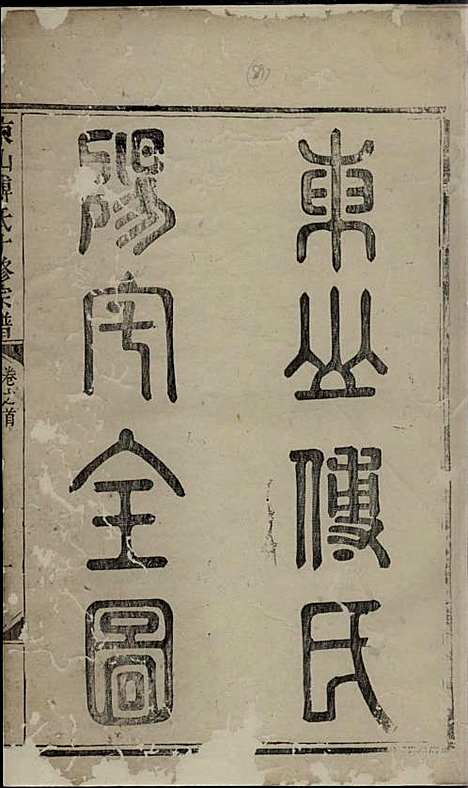 東山傅氏
陽宅全圖
東山傅氏十修宗譜
卷之首